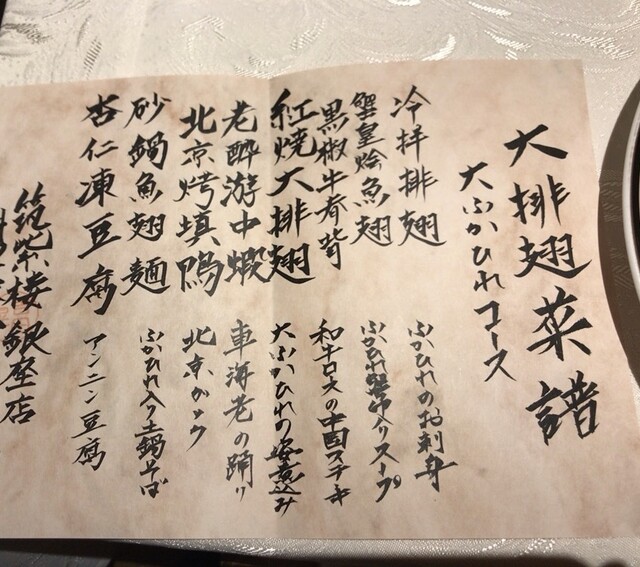 大排翅菜譜
大ふかひれコース
冷拌排翅
ふかひれのお刺身
蟹皇燴魚翅
ふかひれ蟹卵入りスープ
黒椒牛脊背
和牛ロースの中国ステーキ
紅焼大排翅
大ふかひれの姿煮込み
老酔游中蝦
車海老の踊り
北京烤填鴨
北京ダック
砂鍋魚翅麺
ふかひれ入り土鍋そば
杏仁凍豆腐
アンニン豆腐
筑紫樓銀座店